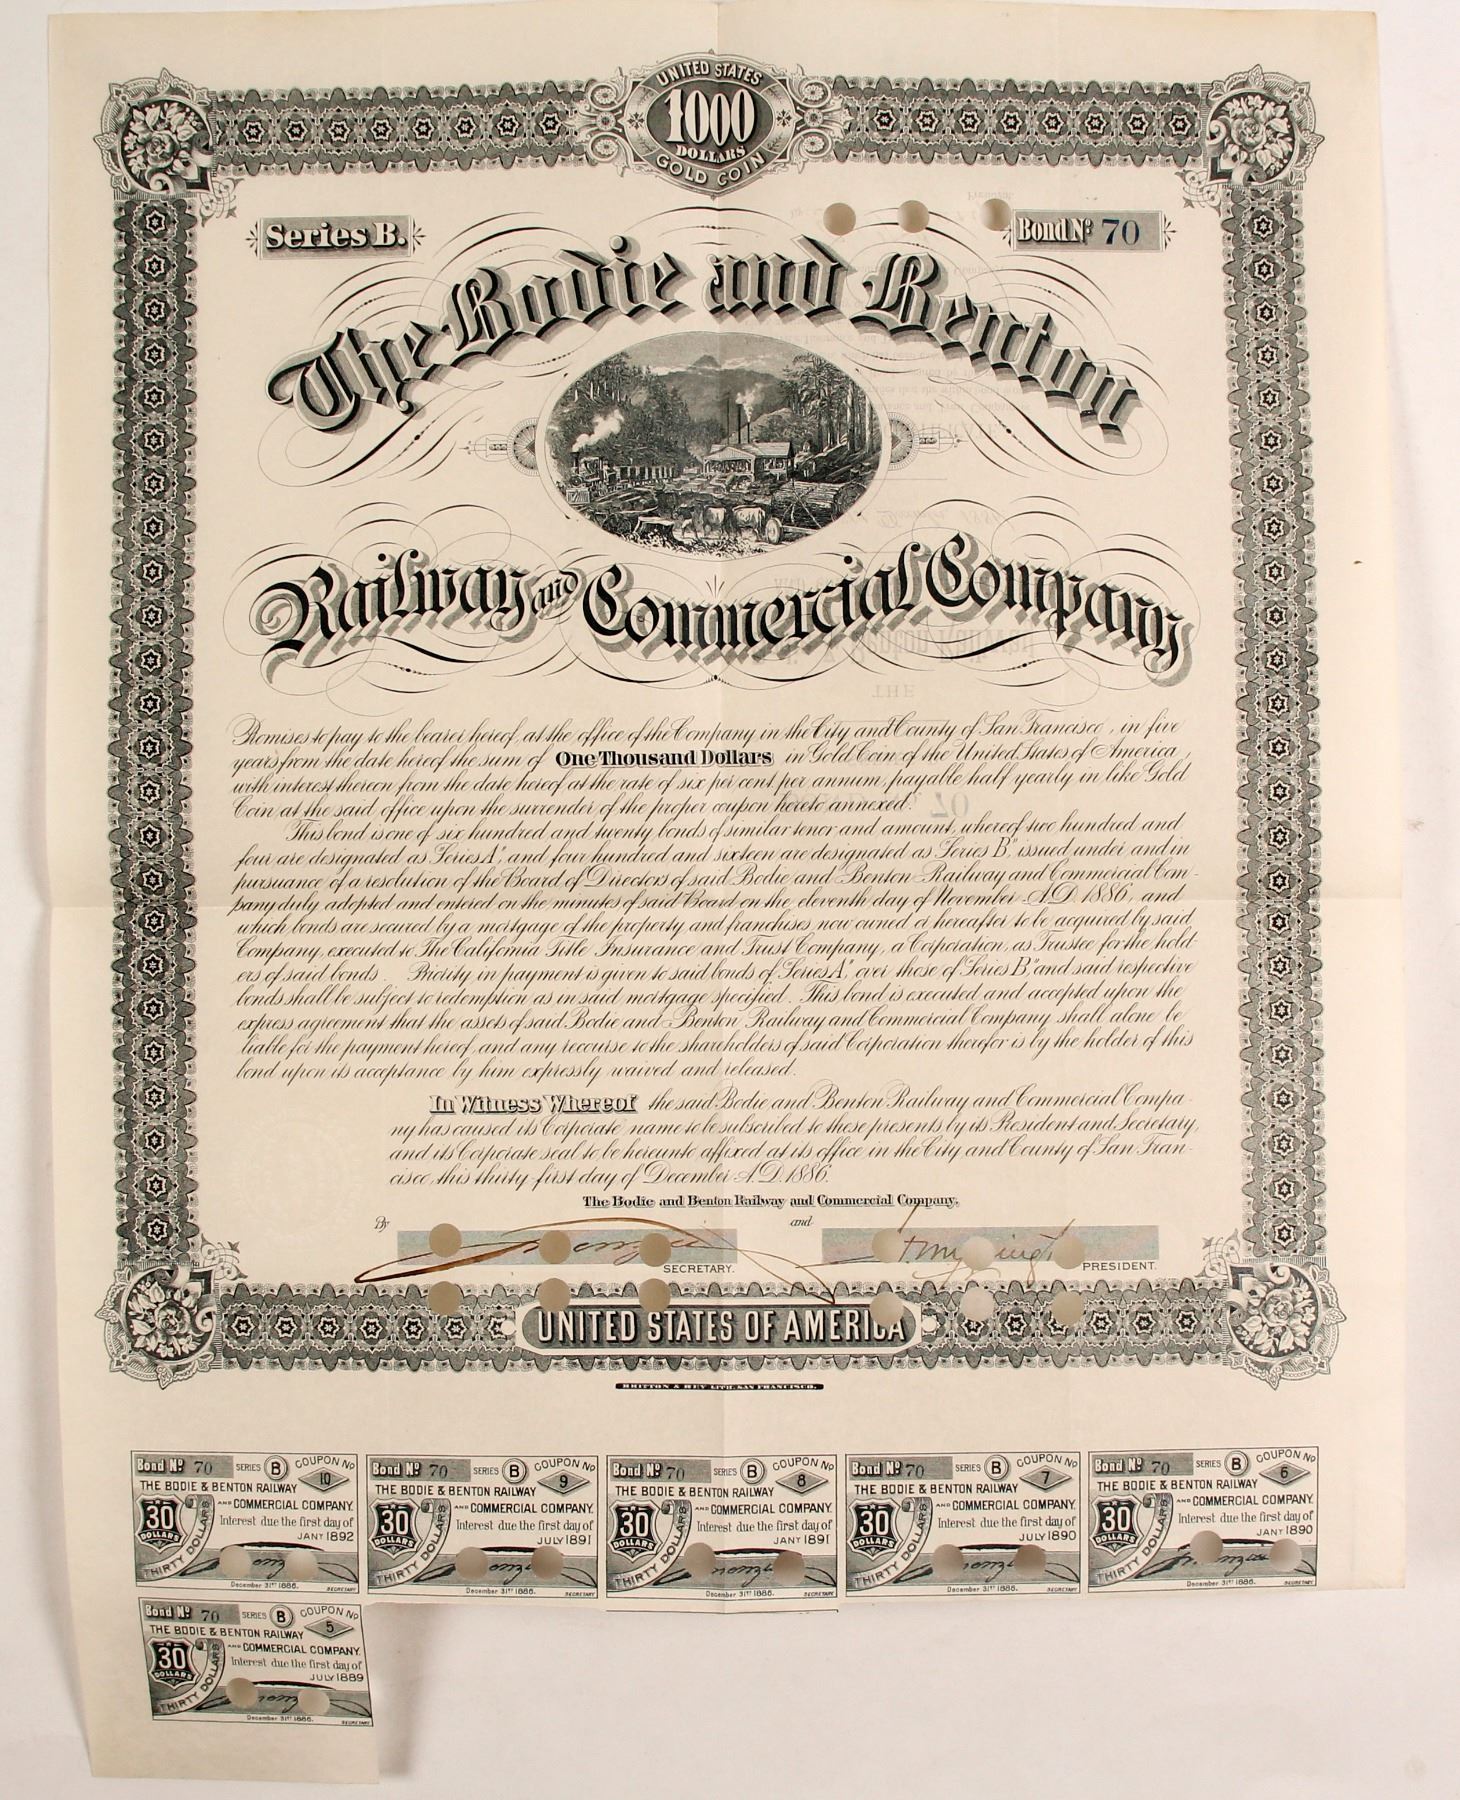 UNITED STATES
1000
DOLLARS
GOLD COIN
Series B.
Bond No. 70
The Bodie and Benton
Railway and Commercial Company
Promises to pay to the bearer hereof, at the office of the Company in the City and County of San Francisco, in five
years from the date hereof the sum of One Thousand Dollars in Gold Coin of the United States of America,
with interest thereon from the date hereof at the rate of six per cent per annum, payable half yearly in like Gold
Coin, at the said office upon the surrender of the proper coupon hereto annexed.
This bond is one of six hundred and twenty bonds of similar tenor and amount, whereof two hundred and
four are designated as "Series A", and four hundred and sixteen are designated as "Series B", issued under and in
pursuance of a resolution of the Board of Directors of said Bodie and Benton Railway and Commercial Com-
pany duly adopted and entered on the minutes of said Board on the eleventh day of November A.D. 1886, and
which bonds are secured by a mortgage of the property and franchises now owned or hereafter to be acquired by said
Company, executed to The California Title Insurance and Trust Company, a Corporation, as Trustee for the hold-
ers of said bonds. Priority in payment is given to said bonds of "Series A" over those of "Series B", and said respective
bonds shall be subject to redemption as in said mortgage specified. This bond is executed and accepted upon the
express agreement that the assets of said Bodie and Benton Railway and Commercial Company shall alone be
liable for the payment hereof, and any recourse to the shareholders of said Corporation therefor is by the holder of this
bond upon its acceptance by him expressly waived and released.
In Witness Whereof the said Bodie and Benton Railway and Commercial Compa-
ny has caused its Corporate name to be subscribed to these presents by its President and Secretary,
and its Corporate seal to be hereunto affixed at its office in the City and County of San Fran-
cisco, this thirty-first day of December A.D. 1886.
The Bodie and Benton Railway and Commercial Company.
By and
SECRETARY. PRESIDENT.
UNITED STATES OF AMERICA
BRITTON & REY LITH. SAN FRANCISCO.
Bond No. 70 SERIES B COUPON No. 10
THE BODIE & BENTON RAILWAY
AND COMMERCIAL COMPANY.
30 DOLLARS
THIRTY DOLLARS
Interest due the first day of
JANY 1892
December 31st 1886.
SECRETARY
Bond No. 70 SERIES B COUPON No. 9
THE BODIE & BENTON RAILWAY
AND COMMERCIAL COMPANY.
30 DOLLARS
THIRTY DOLLARS
Interest due the first day of
JULY 1891
December 31st 1886.
SECRETARY
Bond No. 70 SERIES B COUPON No. 8
THE BODIE & BENTON RAILWAY
AND COMMERCIAL COMPANY.
30 DOLLARS
THIRTY DOLLARS
Interest due the first day of
JANY 1891
December 31st 1886.
SECRETARY
Bond No. 70 SERIES B COUPON No. 7
THE BODIE & BENTON RAILWAY
AND COMMERCIAL COMPANY.
30 DOLLARS
THIRTY DOLLARS
Interest due the first day of
JULY 1890
December 31st 1886.
SECRETARY
Bond No. 70 SERIES B COUPON No. 6
THE BODIE & BENTON RAILWAY
AND COMMERCIAL COMPANY.
30 DOLLARS
THIRTY DOLLARS
Interest due the first day of
JANY 1890
December 31st 1886.
SECRETARY
Bond No. 70 SERIES B COUPON No. 5
THE BODIE & BENTON RAILWAY
AND COMMERCIAL COMPANY.
30 DOLLARS
THIRTY DOLLARS
Interest due the first day of
JULY 1889
December 31st 1886.
SECRETARY